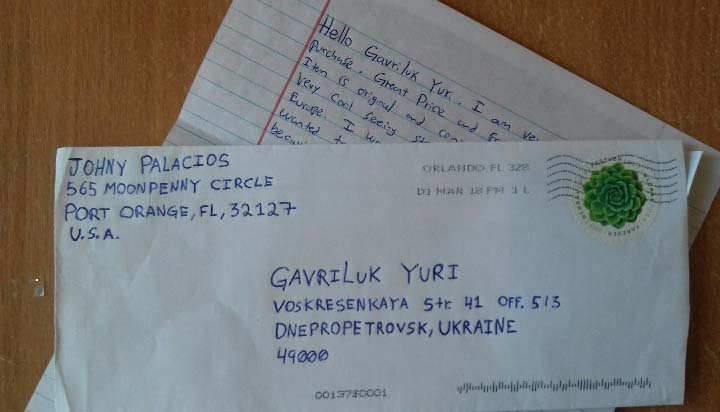 Hello Gavriluk Yuri. I am ve
purchase. Great Price and
Item is original and
very cool seeing
Europe. I
wanted
JOHNY PALACIOS
565 MOONPENNY CIRCLE
PORT ORANGE, FL, 32127
U.S.A.
ORLANDO FL 328
01 MAR 18 PM 1 L
GAVRILUK YURI
VOSKRESENKAYA Str. 41 OFF. 513
DNEPROPETROVSK, UKRAINE
49000
0013730001